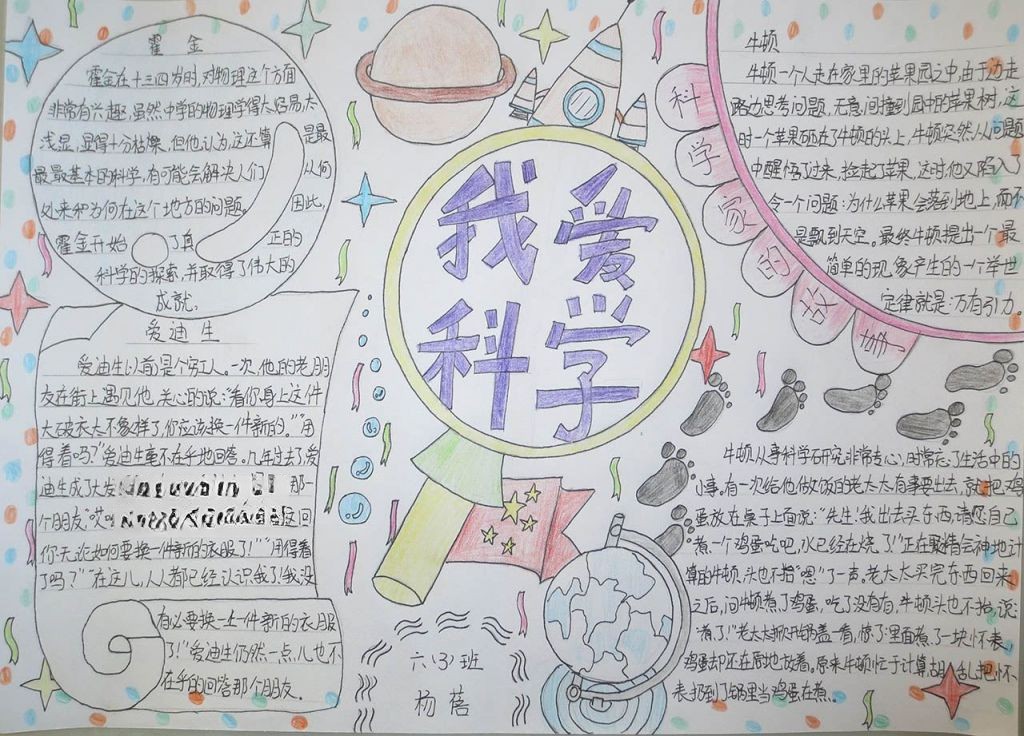 霍金
霍金在十三四岁时,对物理这个方面
非常有兴趣,虽然中学的物理学得太容易太
浅显,显得十分枯燥,但他认为这还算是最
最最基本的科学,有可能会解决人们从何
处来和为何在这个地方的问题。因此,
霍金开始了真正的
科学的探索,并取得了伟大的
成就。
爱迪生
爱迪生以前是个穷工人。一次,他的老朋
友在街上遇见他,关心的说:“看你身上这件
大破衣太不象样了,你应该换一件新的。”“用
得着吗?”爱迪生毫不在乎地回答。几年过去了,爱
迪生成了大发 那一
个朋友“哎呀 这回
你无论如何要换一件新的衣服了!”“用得着
了吗?”“在这儿,人人都已经认识我了!我没
有必要换上一件新的衣服
了!”爱迪生仍然一点儿也不
在乎的回答那个朋友.
我爱
科学
六(3)班
杨蓓
科学家的故事
牛顿
牛顿一个人走在家里的苹果园之中,由于边走
路边思考问题,无意间撞到园中的苹果树,这
时一个苹果砸在了牛顿的头上,牛顿突然从问题
中醒悟了过来,捡起了苹果,这时,他又陷入了
令一个问题:为什么苹果会落到地上,而不
是飘到天空。最终牛顿提出一个最
简单的现象产生的一个举世
定律就是:万有引力。
牛顿从事科学研究非常专心,时常忘了生活中的
小事。有一次给他做饭的老太太有事要出去,就把鸡
蛋放在桌子上面说:“先生!我出去买东西,请您自己
煮一个鸡蛋吃吧,水已经在烧了!”正在聚精会神地计
算的牛顿,头也不抬“嗯”了一声。老太太买完东西回来
之后,问牛顿煮了鸡蛋,吃了没有,牛顿头也不抬,说:
“煮了!”老太太掀开锅盖一看,惊了:里面煮了一块怀表,
鸡蛋却还在原地放着。原来牛顿忙于计算,胡乱把怀
表扔到了锅里当鸡蛋在煮..